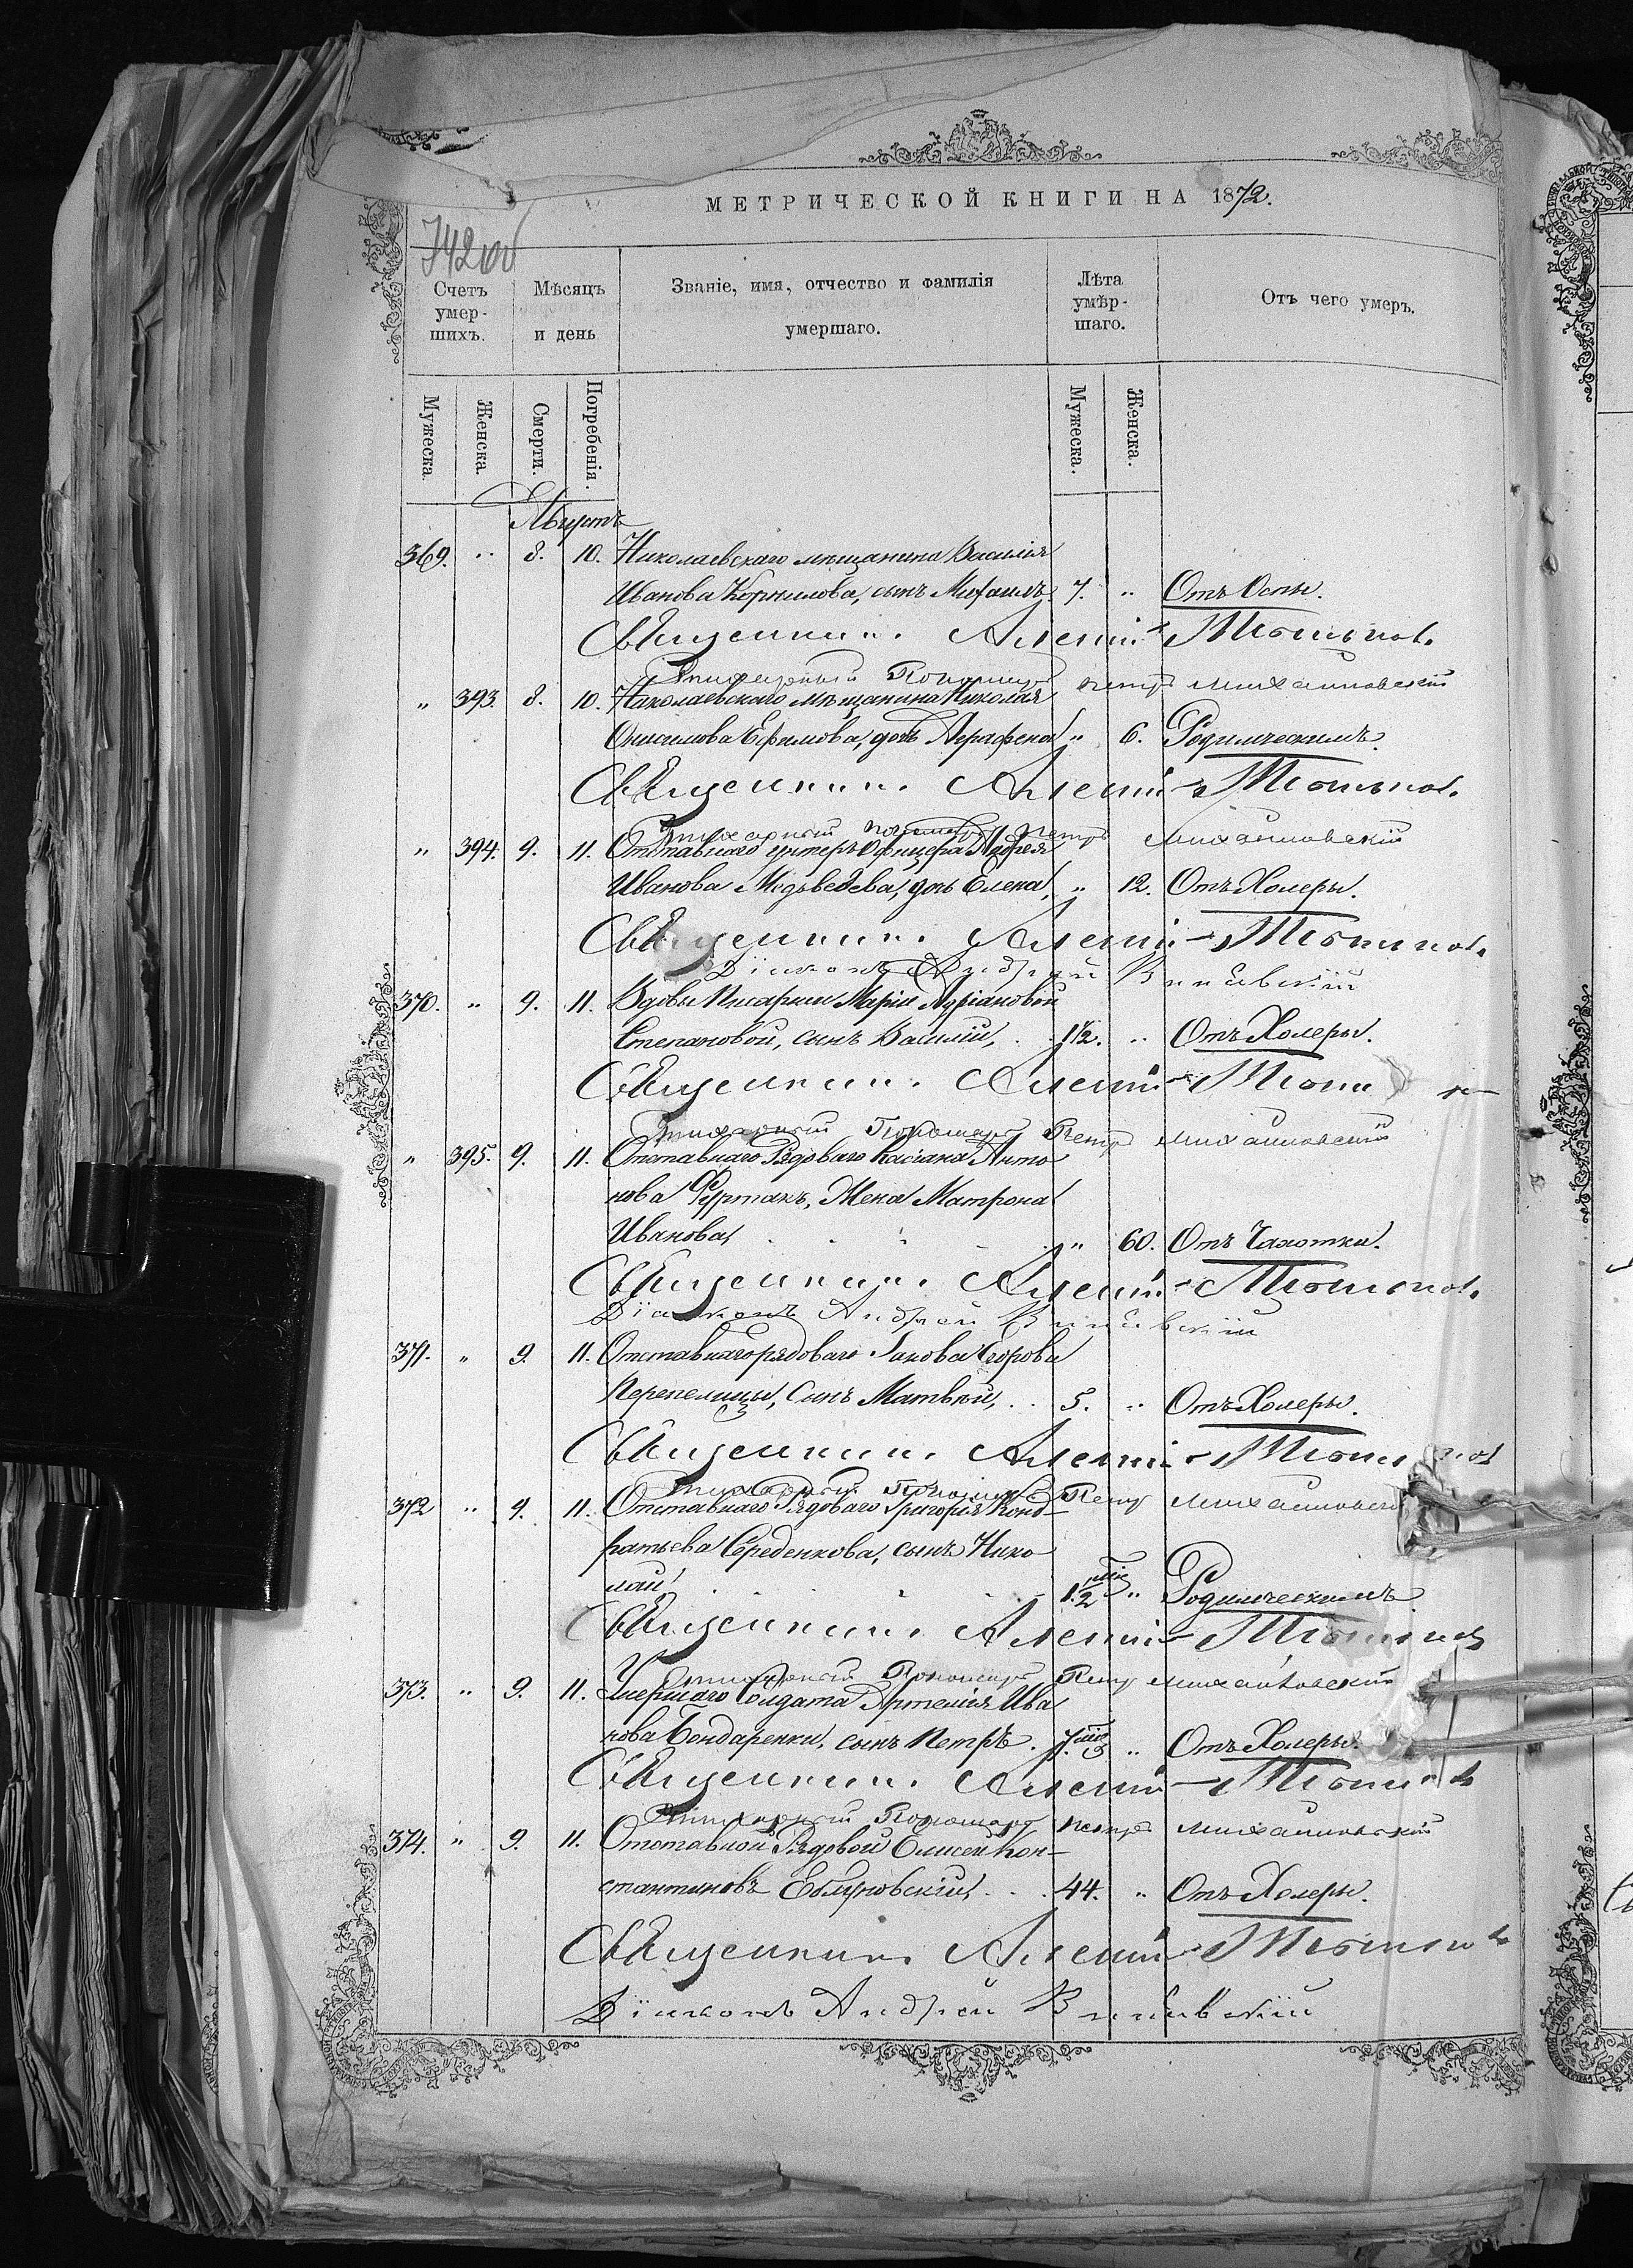 МЕТРИЧЕСКОЙ КНИГИ НА 1872.
742 об
Счетъ умер-шихъ. Мѣсяцъ и день Званіе, имя, отчество и фамилія умершаго. Лѣта умѣр-шаго. Отъ чего умеръ.
Мужеска. Женска. Смерти. Погребенія. Мужеска. Женска.
Августъ
369. " 8. 10. Николаевскаго мѣщанина Василія
Иванова Корнилова, сынъ Михаилъ 7. " Отъ Оспы.
Священникъ Алексій
Стихарный Пономарь Петръ Михайловскій
" 393. 8. 10. Николаевскаго мѣщанина Николая
Онисимова Ефимова, дочь Аграфена " 6. Родимческимъ.
Священникъ Алексій
Стихарный Пономарь Петръ Михайловскій
" 394. 9. 11. Отставнаго унтеръ Офицера Андрея
Иванова Медьведева, дочь Елена, " 12. Отъ Холеры.
Священникъ Алексій
Діаконъ Андрей
370. " 9. 11. Вдовы Писарши Маріи Адріановой
Степановой, сынъ Василій, 1½. " Отъ Холеры.
Священникъ Алексій
Стихарный Пономарь Петръ Михайловскій
" 395. 9. 11. Отставнаго Рядоваго Касіана Анто
нова Фуртакъ, Жена Матрона
Иванова, " 60. Отъ Чахотки.
Священникъ Алексій
Діаконъ Андрей
371. " 9. 11. Отставнаго рядоваго Іакова Егорова
Перепелицы, Сынъ Матвѣй, 5. " Отъ Холеры.
Священникъ Алексій
Стихарный Пономарь Петръ Михайловскій
372 " 9. 11. Отставнаго Рядоваго Григорія Конд-
ратьева Середенкова, сынъ Нико
лай, 1.½ " Родимческимъ
Священникъ Алексій
Стихарный Пономарь Петръ Михайловскій
373. " 9. 11. Умершаго Солдата Артемія Ива
нова Бондаренки, сынъ Петръ. " Отъ Холеры.
Священникъ Алексій
Стихарный Пономарь Петръ Михайловскій
374. " 9. 11. Отставной Рядовой Елисей Кон-
стантиновъ 44. " Отъ Холеры.
Священникъ Алексій
Діаконъ Андрей